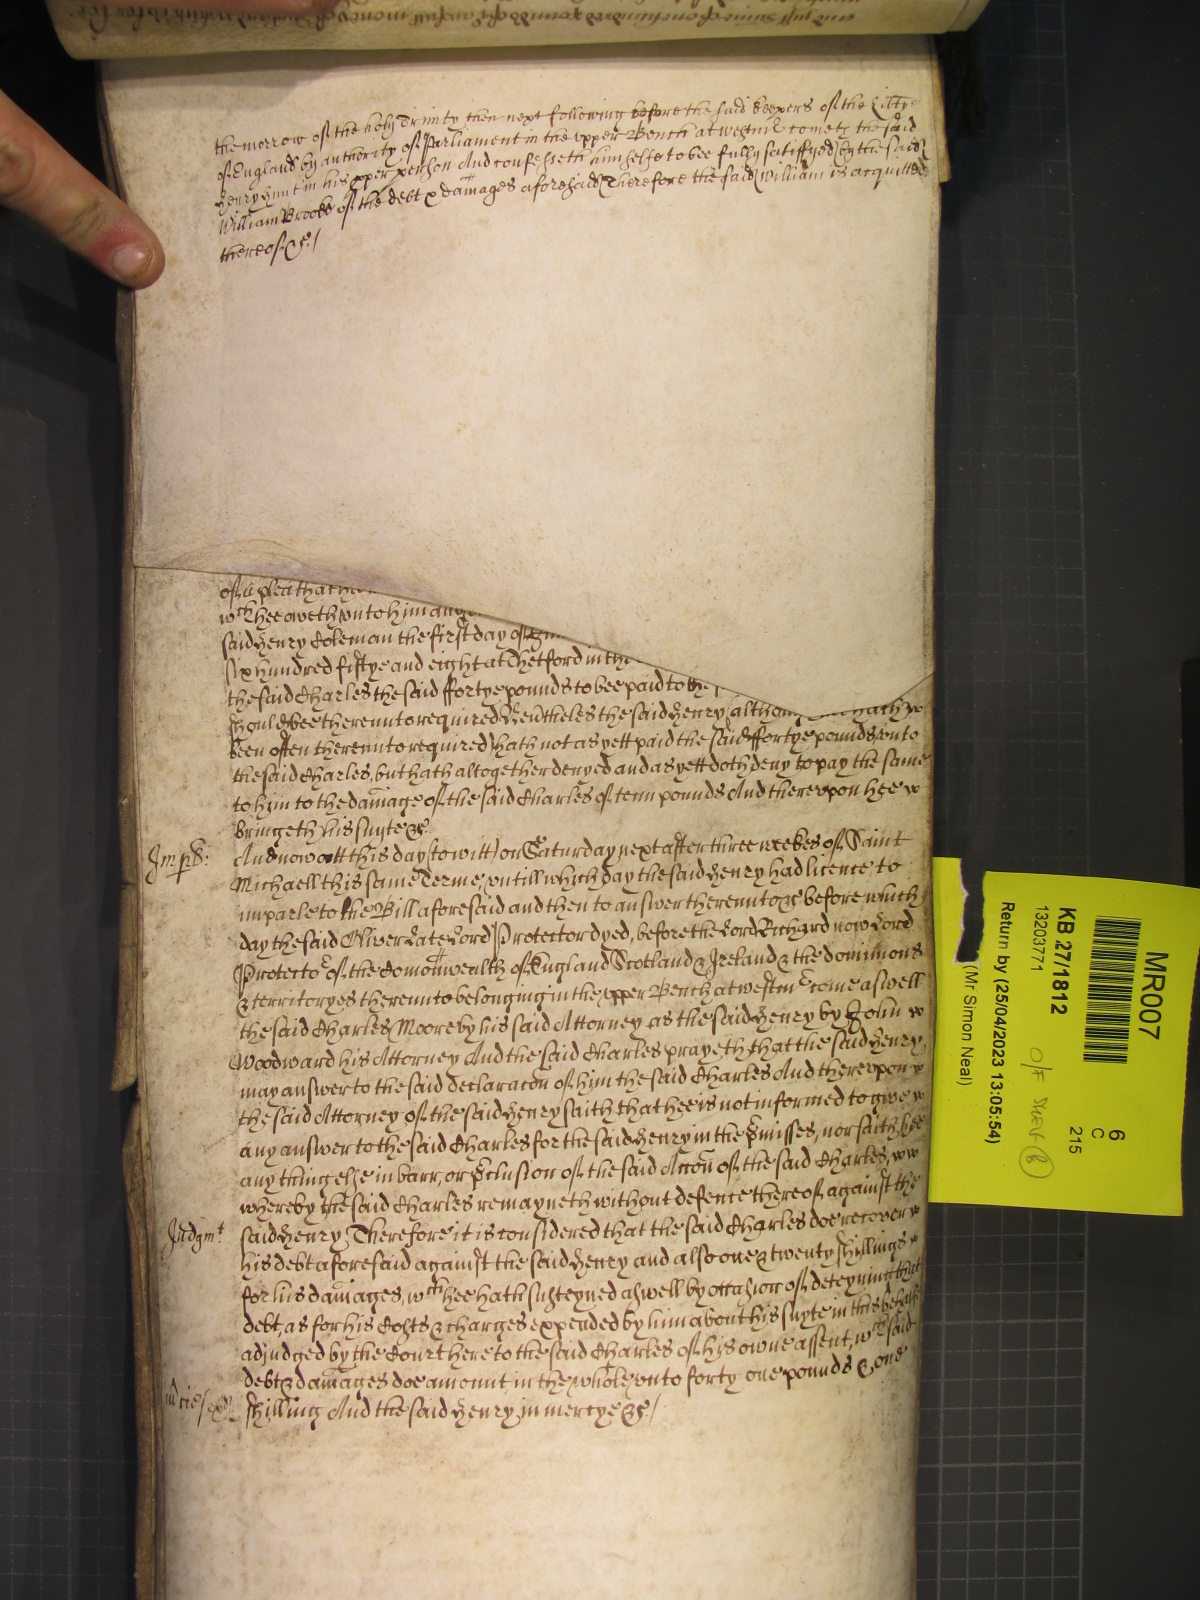 the morrow of the holy Trinity then next following before the said keepers of the Lib̃tye
of England by authority of Parliament in the vpper Bench at westm̃ cometh the said
Henry Hunt in his pper person And confesseth himselfe to bee fully satisfyed by the said
William Brooke of the debt & damages aforesaid Therefore the said William is acquitted
thereof &c./
of a plea that hee
wch hee oweth vnto him and
said Henry Coleman the first day of
six hundred fiftye and eight at Thetford in the
the said Charles the said ffortye pounds to bee paid to the
should bee therevnto required Nev̄theles the said Henry, although hath
been often therevnto required hath not as yett paid the said ffortye pounds vnto
the said Charles, but hath altogether denyed and as yett doth deny to pay the same
to him to the damage of the said Charles of tenn pounds And therevpon hee
bringeth his suyte &c.
Imp̱l:
And now att this day (to witt) on Saturday next after three weekes of Saint
Michaell this same Terme, vntill which day the said Henry had licence to
imparle to the Bill aforesaid and then to answer therevnto &c before which
day the said Oliver Late Lord Protector dyed, before the Lord Richard now Lord
Protector of the Com̄onwealth of England Scotland & Ireland & the dominions
& territoryes therevnto belonging in the vpper Bench at westmr come aswell
the said Charles Moore by his said Attorney as the said Henry by John
Woodward his Attorney And the said Charles prayeth that the said Henry
may answer to the said declarac̃on of him the said Charles And therevpon
the said Attorney of the said Henry saith that hee is not informed to give
any answer to the said Charles for the said Henry in the p̃misses, nor saith hee
any thing else in barr, or p̃clusion of the said Acc̃on of the said Charles,
whereby the said Charles remayneth without defence thereof against the
Judgmt
said Henry, Therefore it is considered that the said Charles doe recover
his debt aforesaid against the said Henry and also one & twenty shillings
for his damages, wch hee hath susteyned aswell by occasion of deteyning that
debt, as for his Costs & charges expended by him about his suyte in this behalfe
adjudged by the Court here to the said Charles of his owne assent, wch said
debt & damages doe amount in the whole vnto forty one pounds & one
m̃cie/
shilling And the said Henry in mercye &c./
MR007
6
C
215
KB 27/1812
13203771
O/F
Return by (25/04/2023 13:05:54)
(Mr Simon Neal)